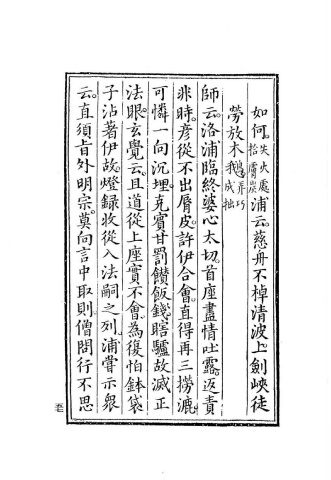 如何。失火處拾膚炭浦云。慈舟不棹清波上。劍峽徒
勞放木鵝。弄巧成拙
師云。洛浦臨終婆心太切。首座盡情吐露。返責
非時。彥從不出脣皮。許伊合會。直得再三撈漉。
可憐一向沉埋。克賓甘罰饡飯錢。瞎驢故滅正
法眼。玄覺云。且道從上座實不會。為復怕鉢袋
子沾著伊。故燈錄收從入法嗣之列。浦嘗示眾
云。直須旨外明宗。莫向言中取則。僧問行不思